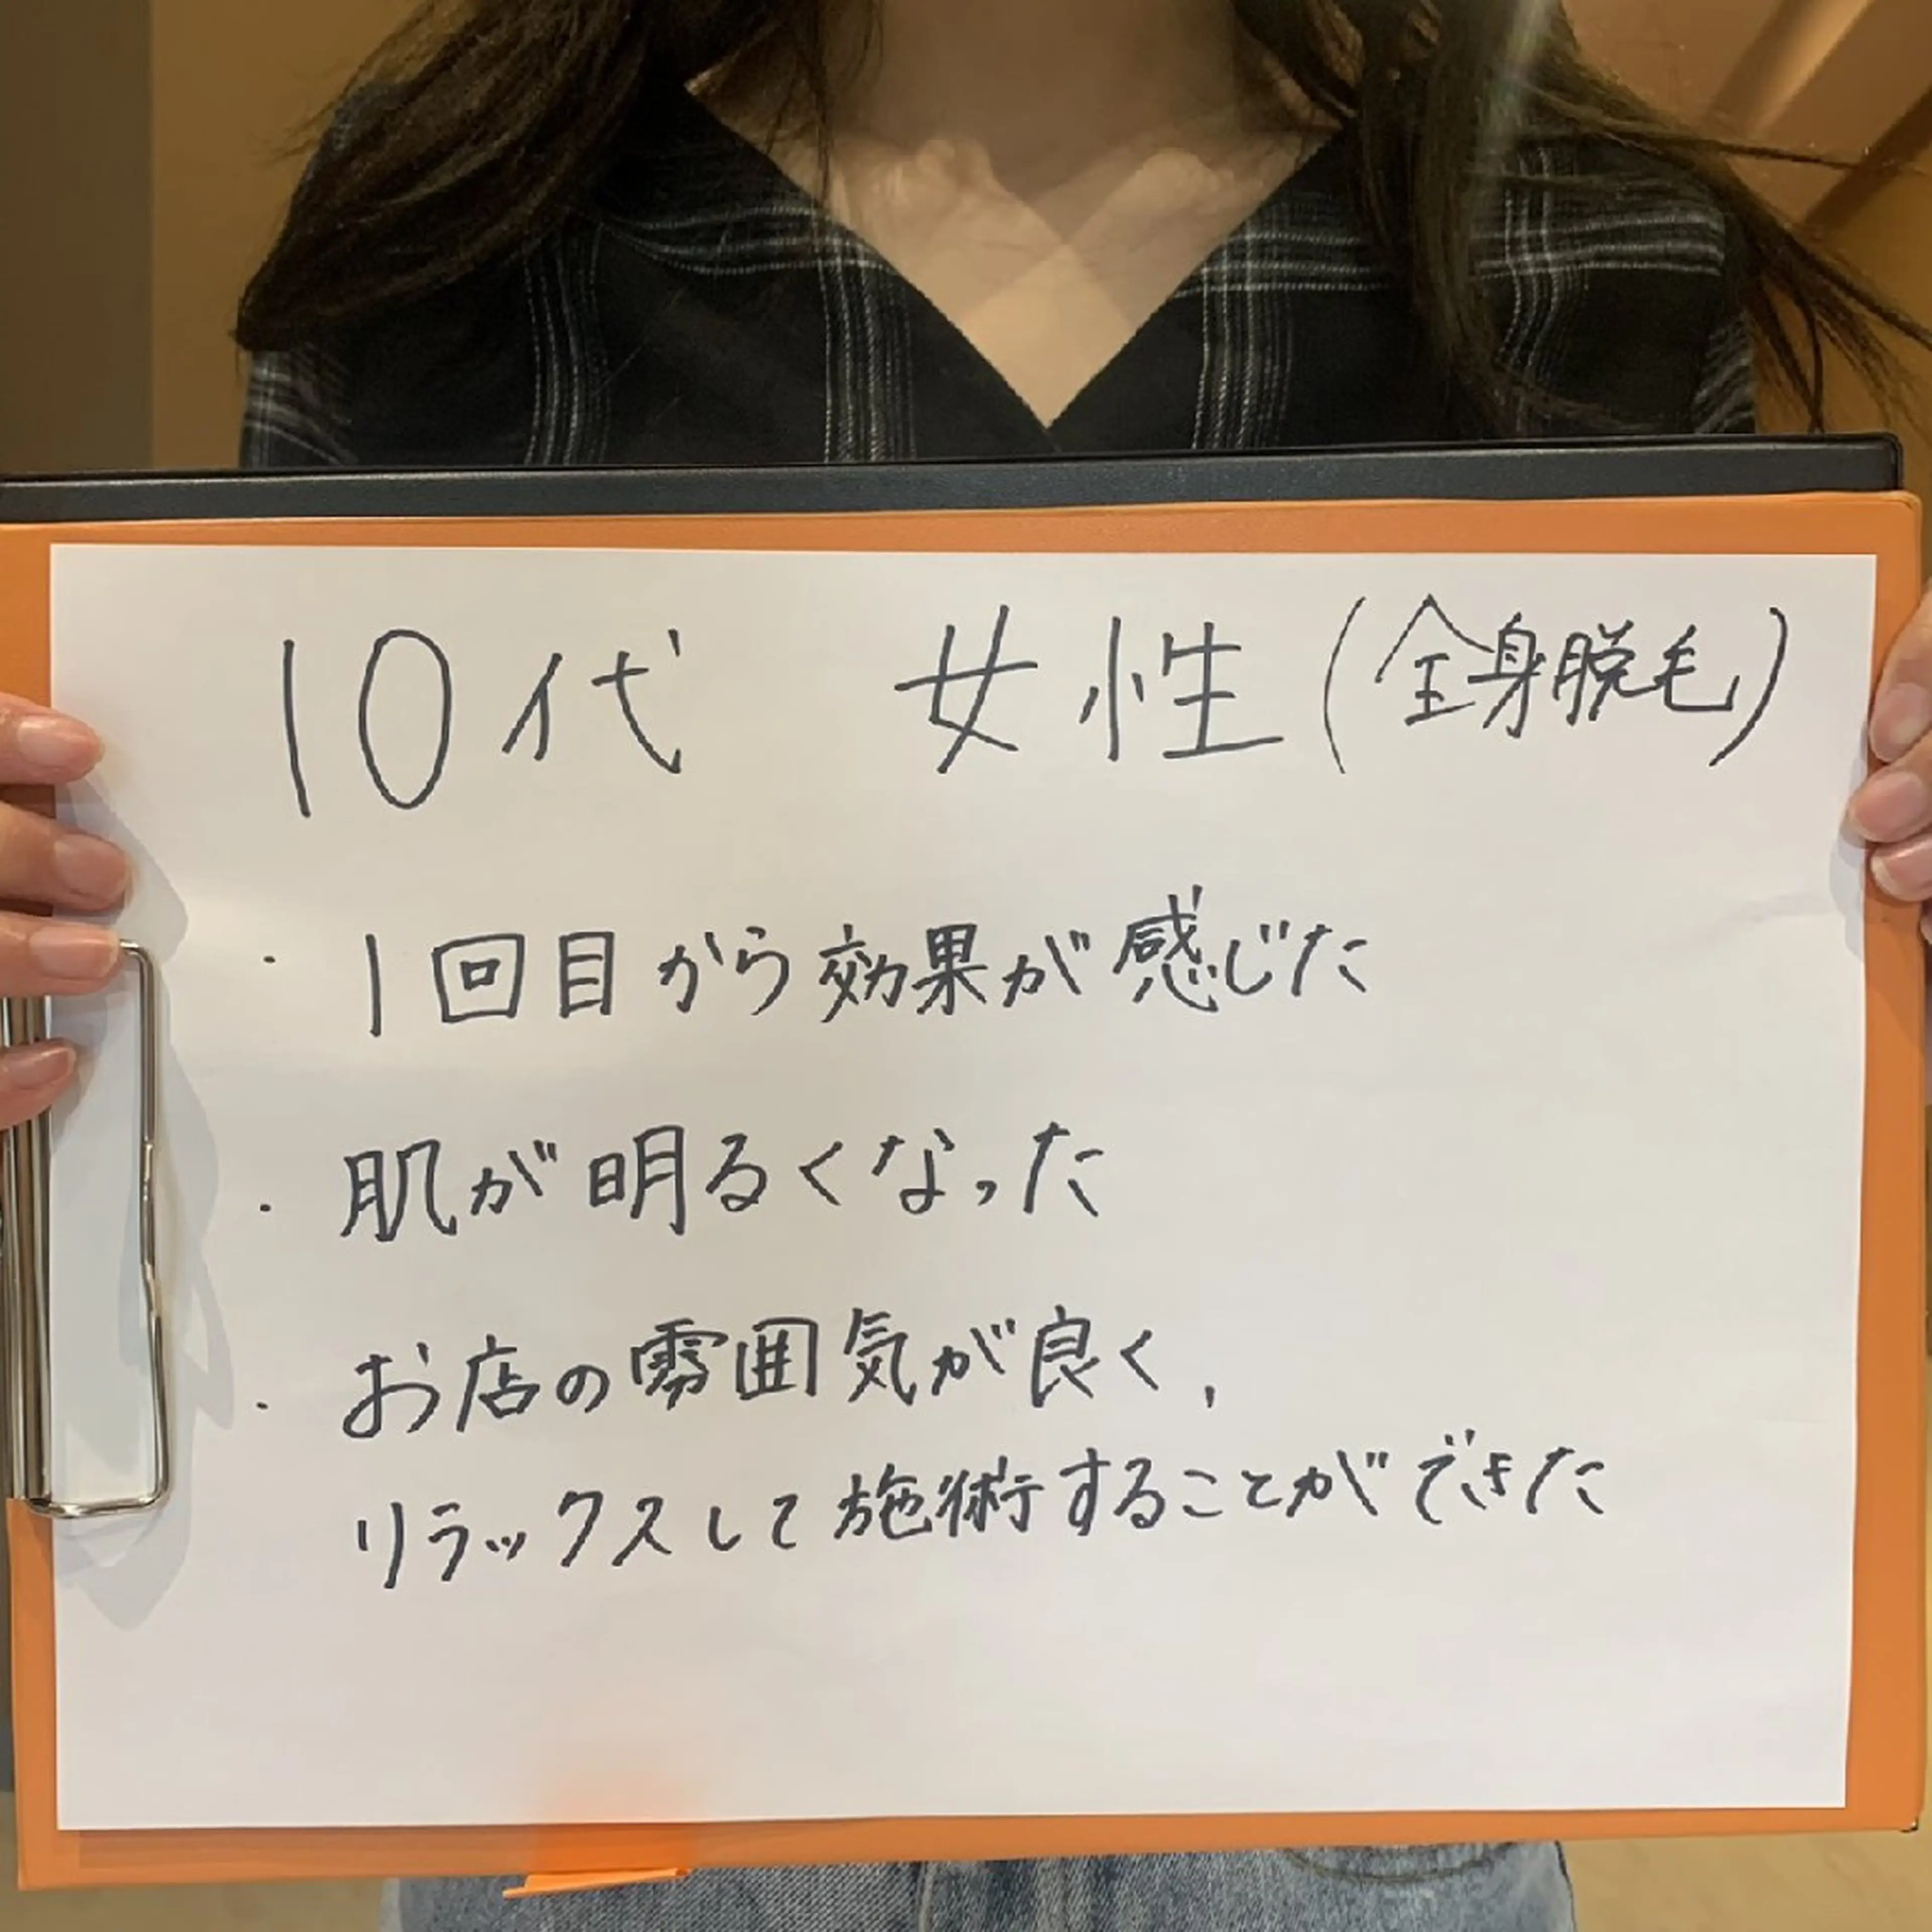 10代 女性(全身脱毛)
・1回目から効果が感じた
・肌が明るくなった
・お店の雰囲気が良く、
リラックスして施術することができた